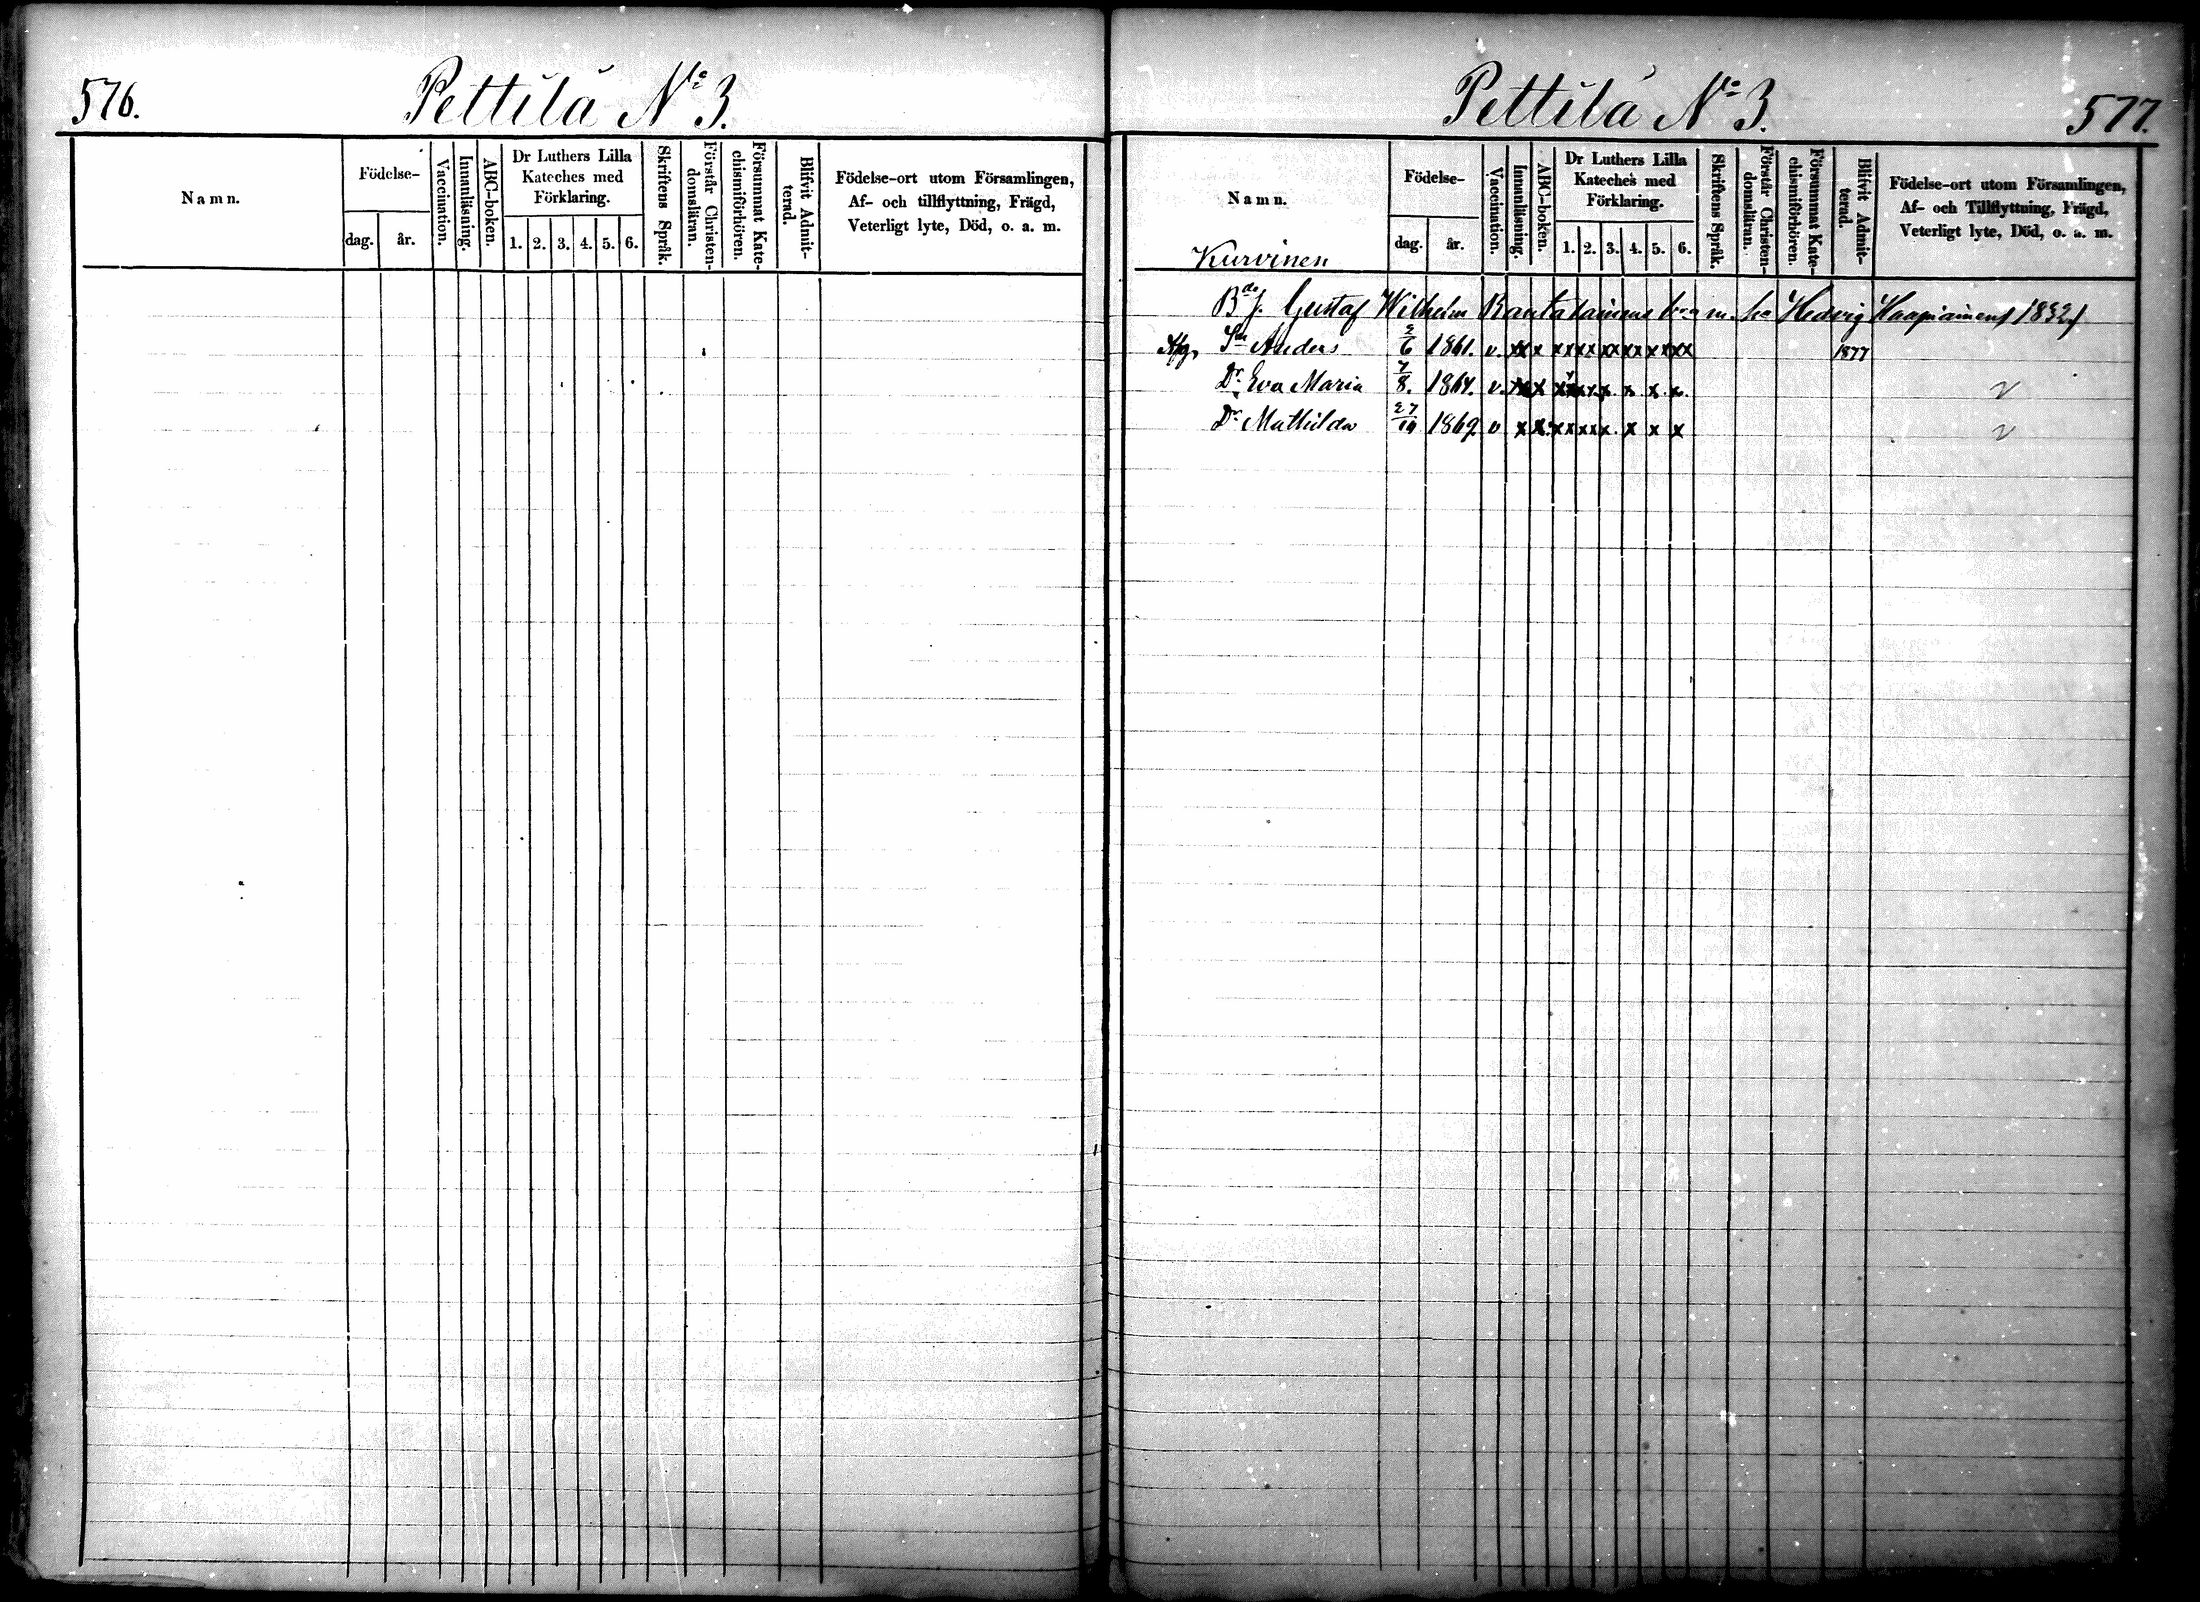 576. Pettilä No 3.
Namn.
Födelse-
dag. år.
Vaccination.
Innanläsning.
ABC-boken.
Dr Luthers Lilla
Kateches med
Förklaring.
1. 2. 3. 4. 5. 6.
Skriftens Språk.
Förstår Christen-
domsläran.
Försummat Kate-
chismiförhören.
Blifvit Admit-
terad.
Födelse-ort utom Församlingen,
Af- och tillflyttning, Frägd,
Veterligt lyte, Död, o. a. m.
Pettilä No 3. 577.
Namn.
Kurvinen
Födelse-
dag. år.
Vaccination.
Innanläsning.
ABC-boken.
Dr Luthers Lilla
Kateches med
Förklaring.
1. 2. 3. 4. 5. 6.
Skriftens Språk.
Förstår Christen-
domsläran.
Försummat Kate-
chismiförhören.
Blifvit Admit-
terad.
Födelse-ort utom Församlingen,
Af- och Tillflyttning, Frägd,
Veterligt lyte, Död, o. a. m.
Gustaf Wilhelm m. Hedvig Haapiainen 1832
Sn Anders 2/6 1861. v. xx x xx xx xx xx xx xx 1877
Dr Eva Maria 7/8. 1864. v.
Dr Mathilda 27/10 1869 v x